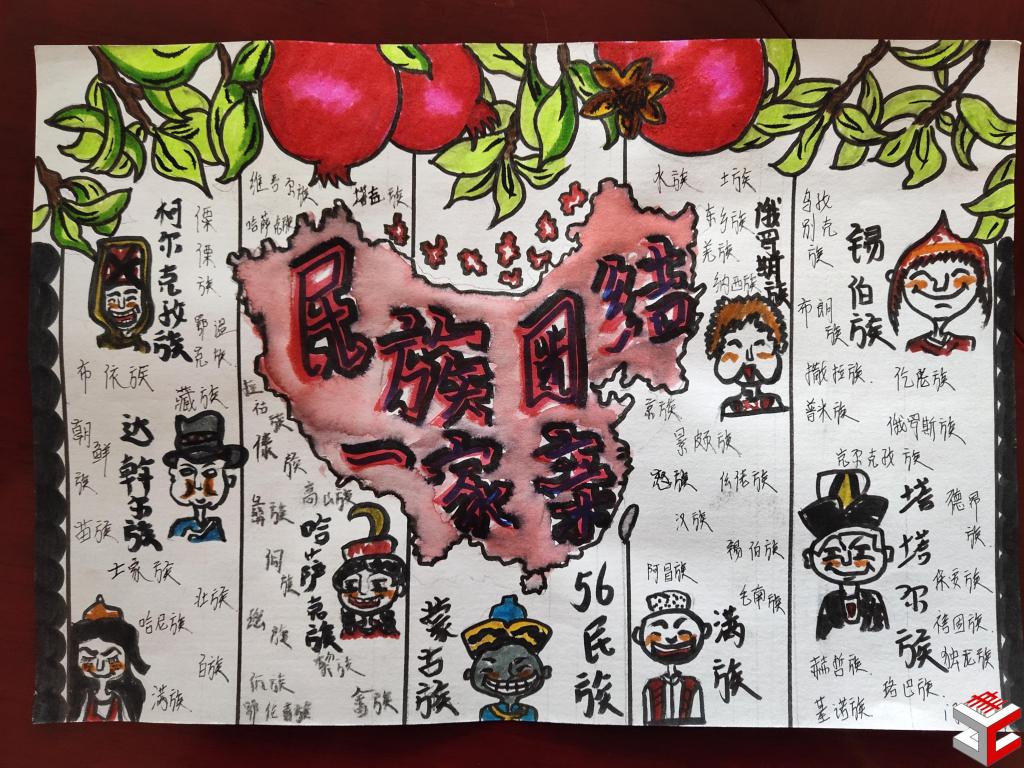 民族团结
一家亲
56民族
柯尔克孜族
傈僳族
鄂温克族
布依族
藏族
朝鲜族
达斡尔族
苗族
土家族
壮族
哈尼族
白族
满族
维吾尔族
哈萨克族
拉祜族
傣族
高山族
彝族
侗族
瑶族
哈萨克族
黎族
畲族
鄂伦春族
蒙古族
水族
土族
东乡族
羌族
纳西族
俄罗斯族
京族
景颇族
怒族
仫佬族
汉族
锡伯族
阿昌族
毛南族
满族
乌孜别克族
锡伯族
布朗族
撒拉族
仡佬族
普米族
俄罗斯族
克尔克孜族
塔塔尔族
德昂族
保安族
裕固族
赫哲族
独龙族
珞巴族
基诺族